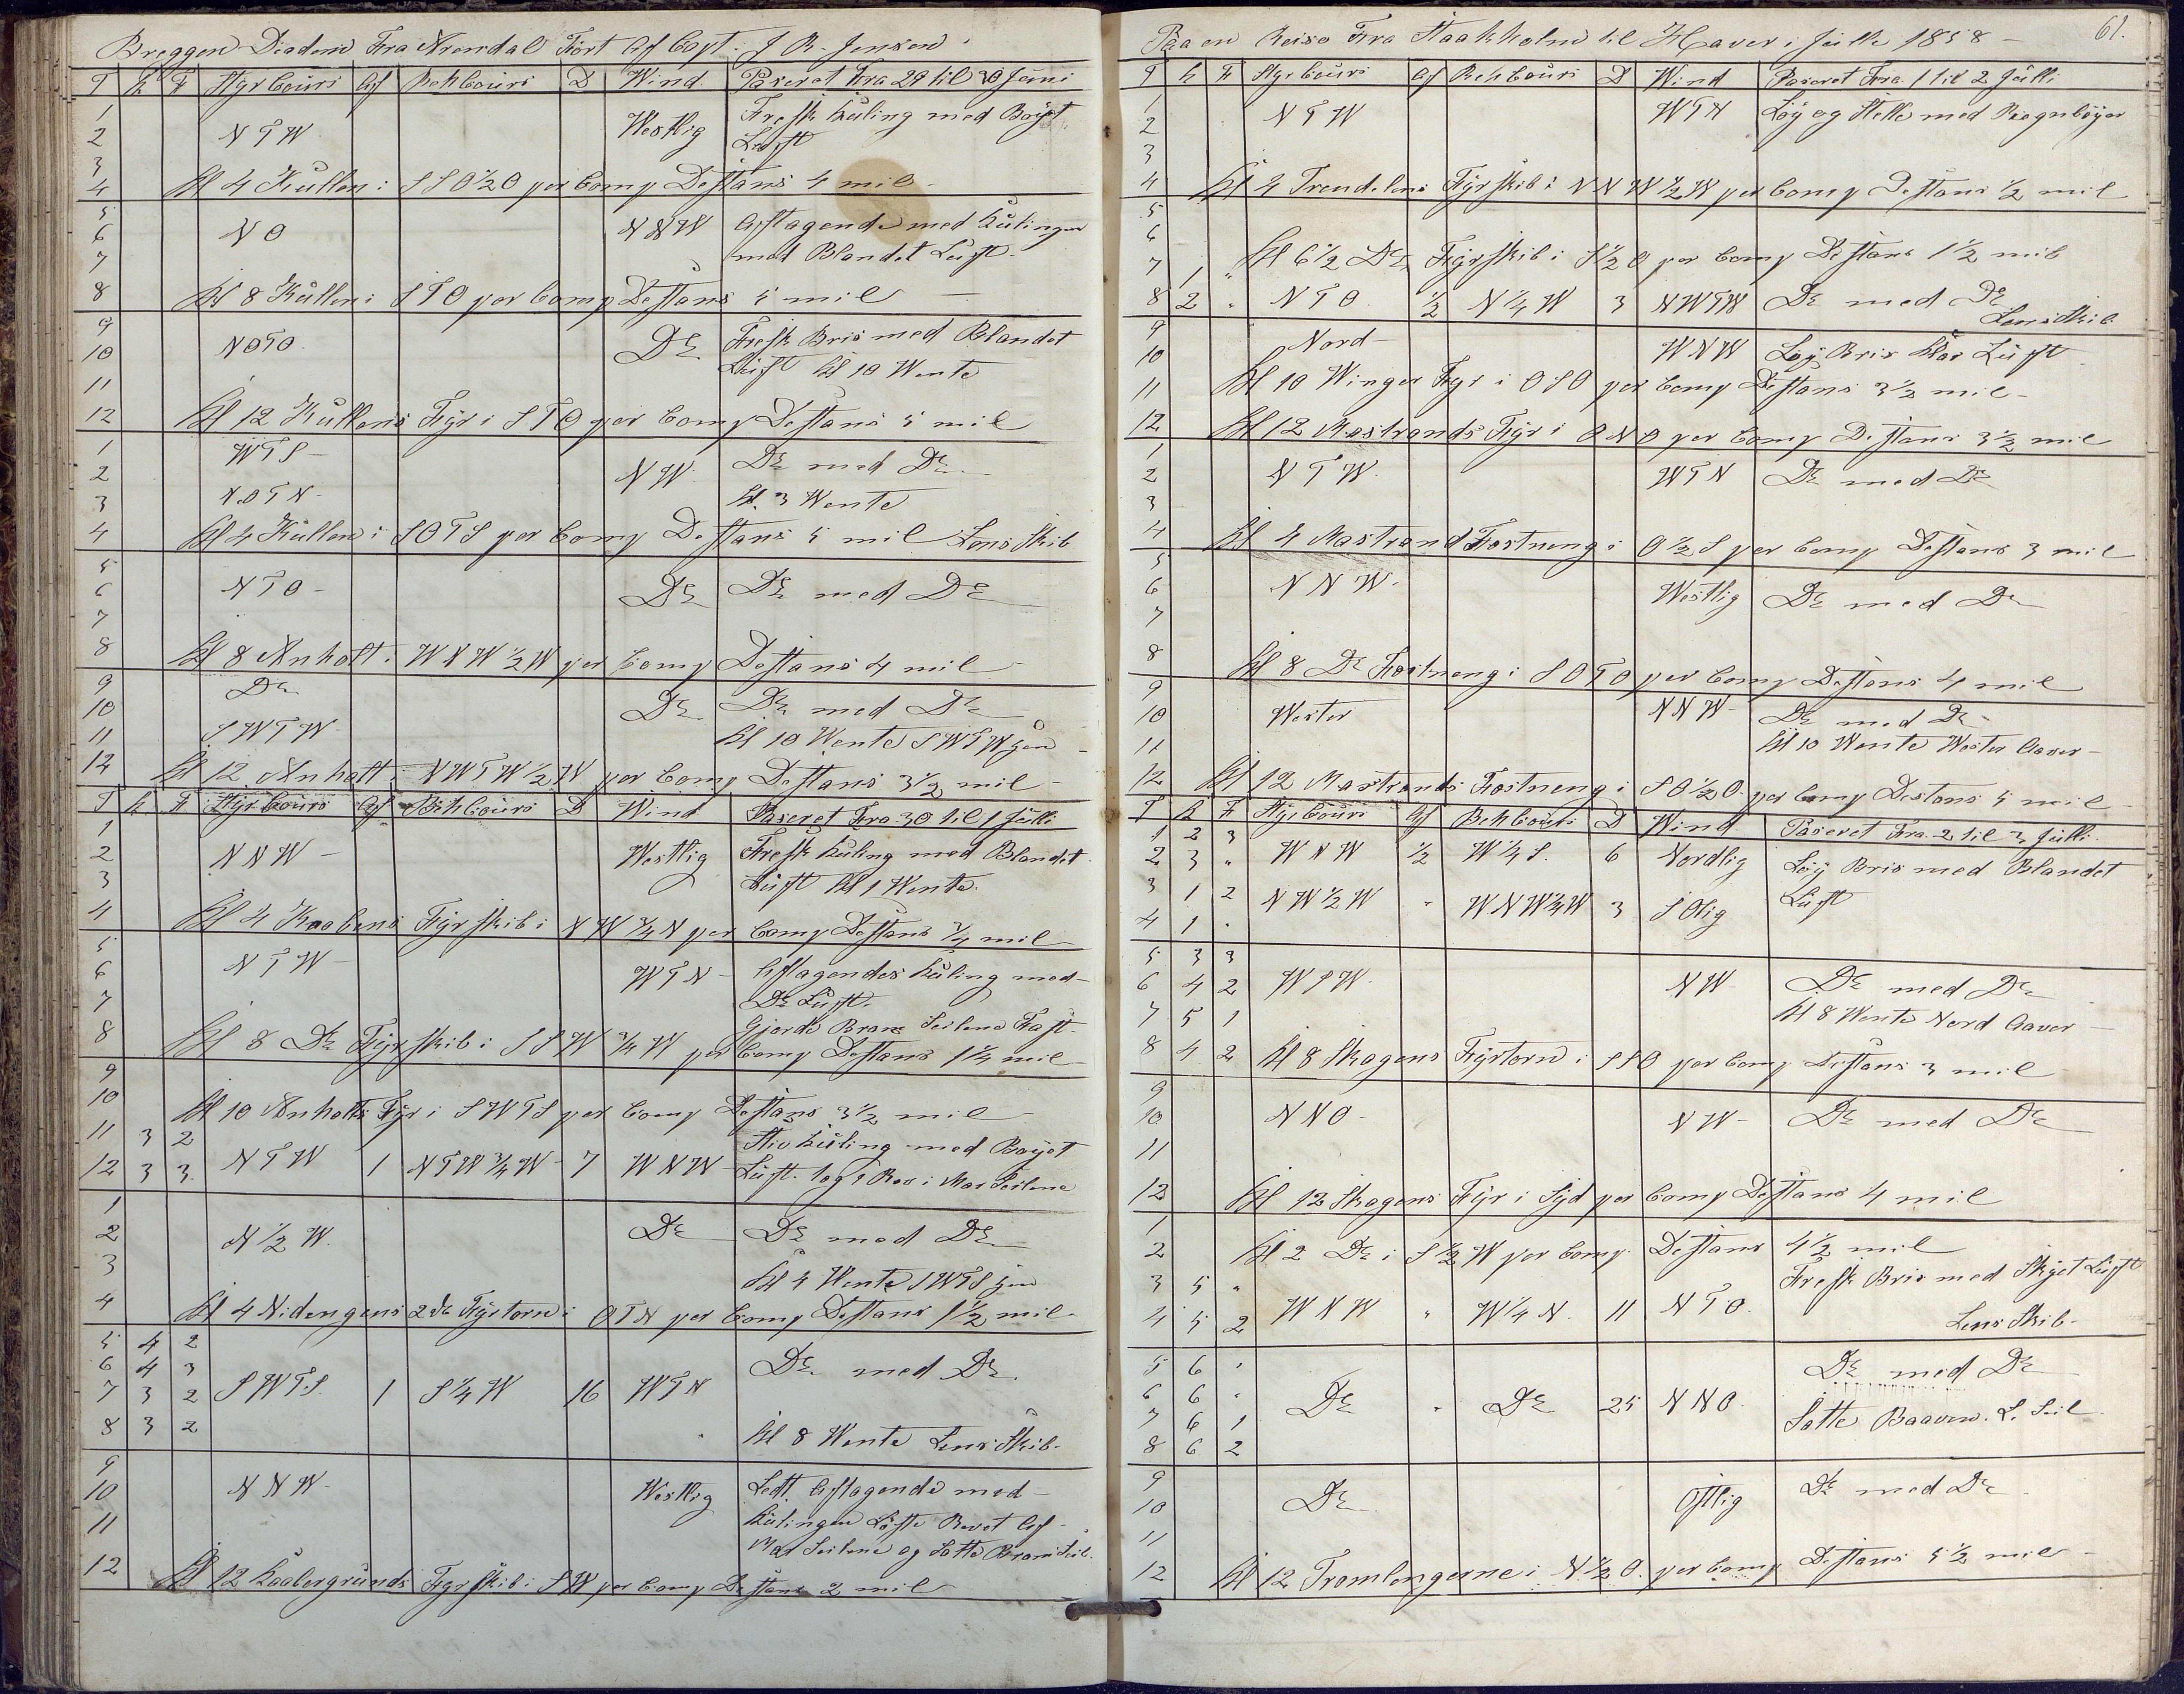 Breggen Diadem Fra Arendal Fört Af Capt. J R. Jensen
T K F Styr Cours Af Beh Cours D Wind Paseret Fra 29 til 30 Juni
1
2 N T W Westlig Fresk Kuling med Böyet
3 Luft
4 Kl 4 Kullen i S S O ½ O per Comp Destans 4 mil
5
6 N O N N W Aftagende med Kulingen
7 med Blandet Luft.
8 Kl 8 Kullen i S T O per Comp Destans 5 mil
9
10 N O T O Do Fresk Bris med Blandet
11 Luft Kl 10 Wente
12 Kl 12 Kullens Fyr i S T O per Comp Destans 5 mil
1 W T S
2 N W Do med Do
3 N O T N Kl. 3 Wente
4 Kl 4 Kullen i S O T S per Comp Destans 5 mil Lens Skib
5
6 N T O Do Do med Do
7
8 Kl 8 Anholt i W N W ½ W per Comp Destans 4 mil
9 Do
10 Do Do med Do
11 S W T W Kl 10 Wente S W T W
12 Kl 12 Anholt i N W T W ½ W per Comp Destans 3½ mil
T K F Styr Cours Af Beh Cours D Wind Paseret Fra 30 til 1 Julli
1
2 N N W Westlig Fresk Kuling med Blandet
3 Luft Kl 1 Wente
4 Kl 4 Kaabens Fyrskib i N W ¾ N per Comp Destans ¾ mil
5
6 N T W W T N Aftagendes Kuling med
7 Do Luft.
8 Gjorde Bram Seilene Fast
Kl 8 Do Fyrskib i S S W ¾ W per Comp Destans 1¼ mil
9
10 Kl 10 Anholts Fyr i S W T S per Comp Destans 3½ mil
11 3 2 Stiv Kuling med Böyet
12 3 3 N T W 1 N T W ¾ W 7 W N W Luft. 1 og 2 Rev i Mas Seilene
1
2 N ½ W Do Do med Do
3 Kl 4 Wente S W T S
4 Kl 4 Nidengens 2de Fyrtorn i O T N per Comp Destans 1½ mil
5 4 2
6 4 3 Do med Do
7 3 2 S W T S. 1 S ¼ W 16 W T N
8 3 2 Kl 8 Wente Lens Skib
9
10 N N W Westlig Aftagende med
11 Kulingen Löste Revet Af
Mas Seilene og Satte Bram Seil.
12 Kl 12 Kaabergrunds Fyrskib i S W per Comp Destans 2 mil
Paa en Reise Fra Staakholm til Haver i Julli 1858 61.
T K F Styr Cours Af Beh Cours D Wind Paseret Fra 1 til 2 Julli
1 N T W W T N Löy og Stelle med Regnböyer
2
3
4 Kl 4 Trendelens Fyrskib i N N W ½ W per Comp Destans ½ mil
5
6
7 1 " Kl 6½ Do Fyrskib i S ½ O per Comp Destans 1½ mil
8 2 " N T O ½ N ¼ W 3 N W T W Do med Do
Lens Skib
9 Nord
10 W N W Löy Bris Klar Luft
11 Kl 10 Winger Fyr i O S O per Comp Destans 3½ mil
12 Kl 12 Mastrands Fyr i O N O per Comp Destans 3½ mil
1
2 N T W W T N Do med Do
3
4 Kl 4 Mastrand Fostneng i O ½ S per Comp Destans 3 mil
5
6 N N W Westlig Do med Do
7
8 Kl 8 Do Fostneng i S O T O per Comp Destans 4 mil
9
10 Wester N N W Do med Do
11 Kl 10 Wente Wester Aaver
12 Kl 12 Mastrands Fostneng i S O ½ O per Comp Destans 5 mil
T K F Styr Cours Af Beh Cours D Wind Paseret Fra 2 til 3 Julli
1 2 3
2 3 " W N W ½ W ¼ S. 6 Nordlig Löy Bris med Blandet
3 1 2 N W ½ W " W N W ¾ W 3 S Olig Luft
4 1 "
5 3 3
6 4 2 W S W N W Do med Do
7 5 1 Kl 8 Wente Nord Aaver
8 4 2 Kl 8 Skagens Fyrtorn i S S O per Comp Destans 3 mil
9
10 N N O N W Do med Do
11
12 Kl 12 Skagens Fyr i Syd per Comp Destans 4 mil
1
2 Kl 2 Do i S ½ W per Comp Destans 4½ mil
3 5 " Fresk Bris med Skyet Luft
4 5 2 W N W " W ¼ N. 11 N T O.
Lens Skib
5 6 " Do med Do
6 6 " Do " Do 25 N N O
7 6 1 Satte L. Seil
8 6 2
9
10 Do Östlig Do med Do
11
12 Kl 12 Tromlengerne i N ½ O. per Comp Destans 5½ mil